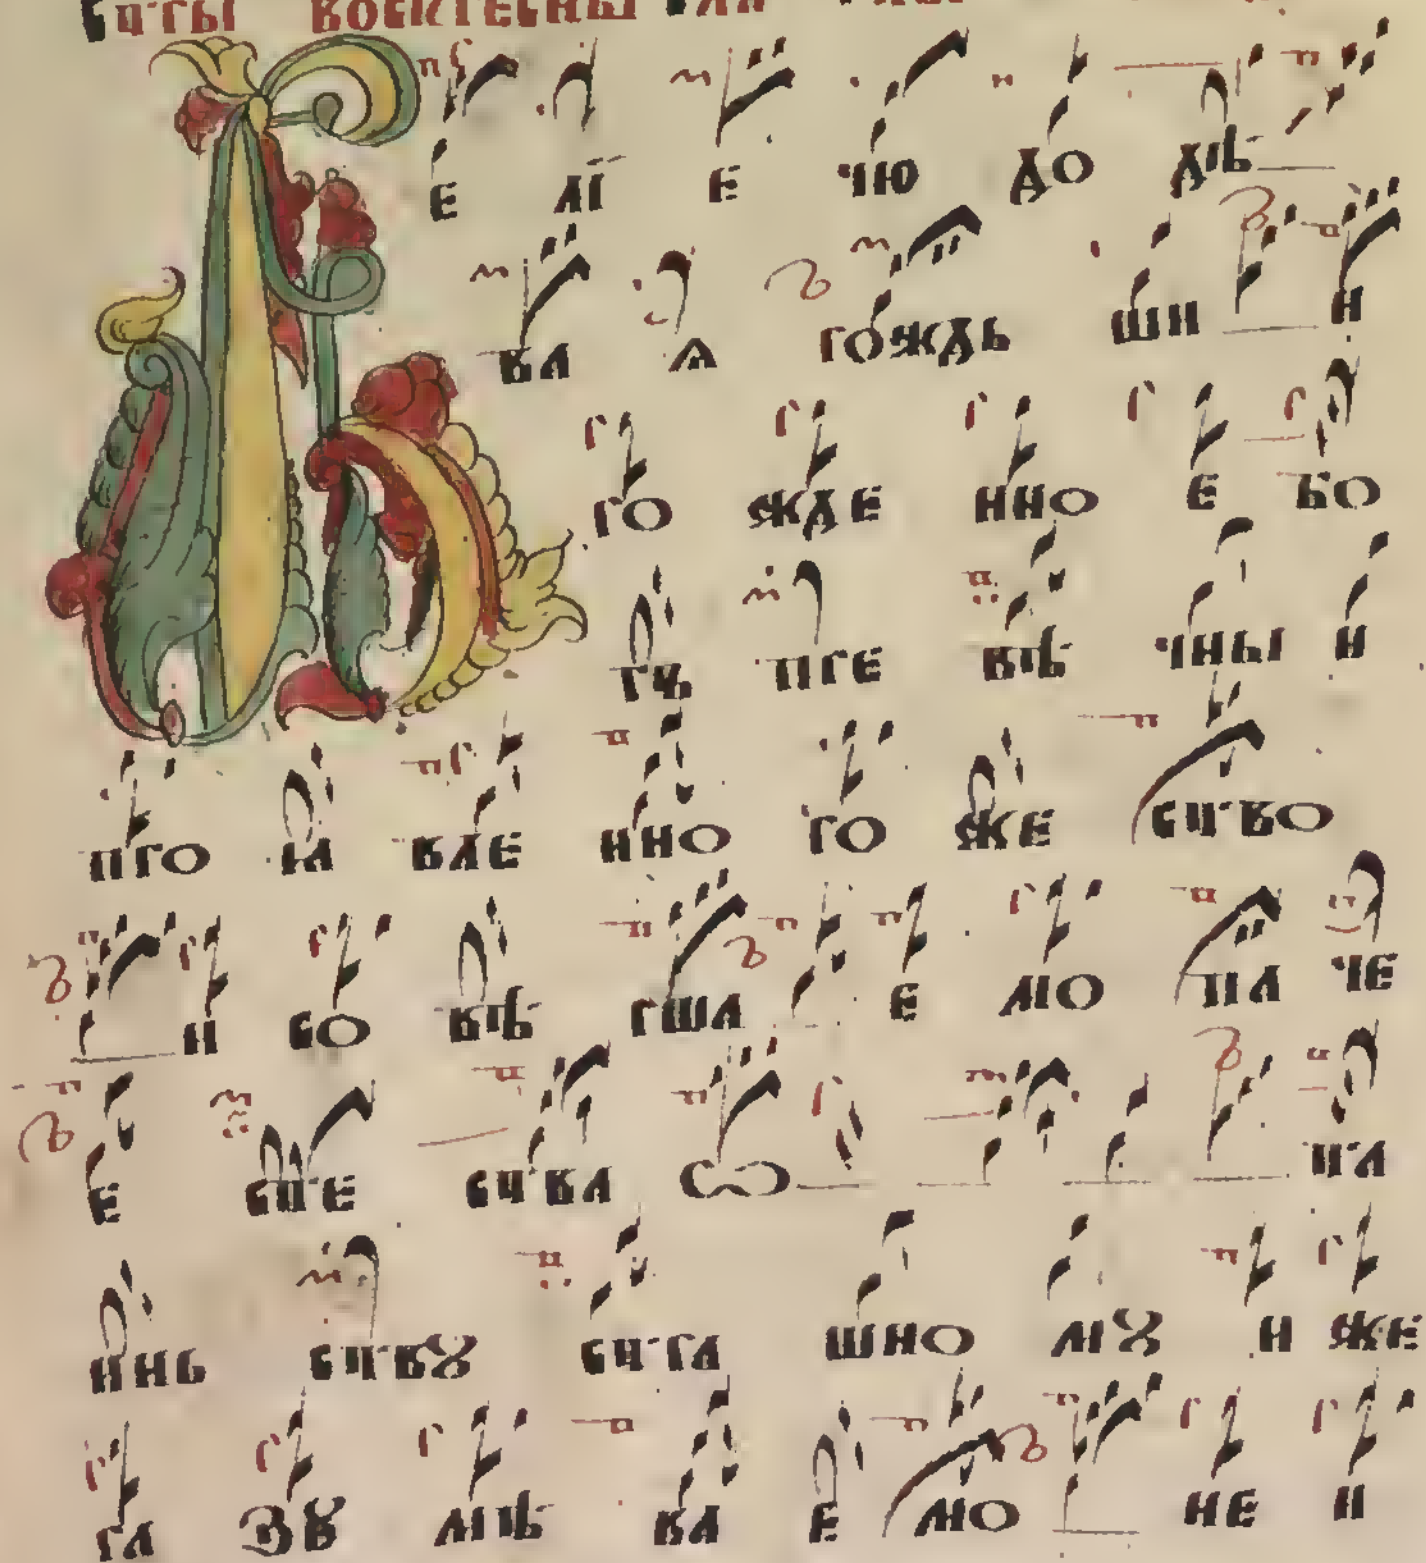 воскресны
е лї е чю до дѣ
ва ѧ рождь ши и
ро жде нно е бо
гъ пре вѣ чны и
про ꙗ вле нно ро же ство
и со вѣ рша е мо па че
е сте ства ѽ та
инь ствꙋ стра шно мꙋ и же
ра зꙋ мѣ ва е мо не и